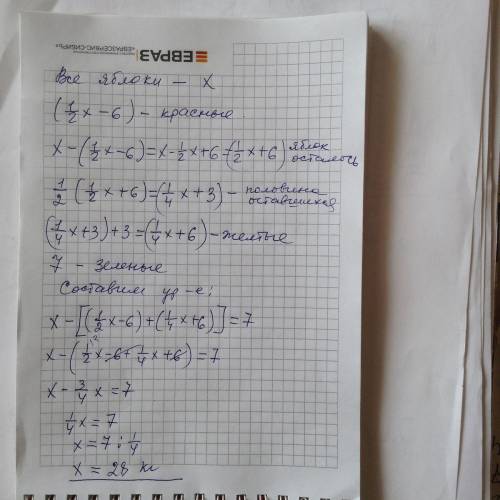 ЕВРАЗ
«ЕВРАЗСЕРВИС-СИБИРЬ»
Все яблоки — x
(1/2x-6) - красные
x-(1/2x-6)=x-1/2x+6=(1/2x+6) яблок осталось
1/2(1/2x+6)=(1/4x+3) - половина оставшихся
(1/4x+3)+3=(1/4x+6) - желтые
7 - зеленые
Составим ур-е:
x-[(1/2x-6)+(1/4x+6)]=7
x-(1/2x-6+1/4x+6)=7
x-3/4x=7
1/4x=7
x=7:1/4
x=28